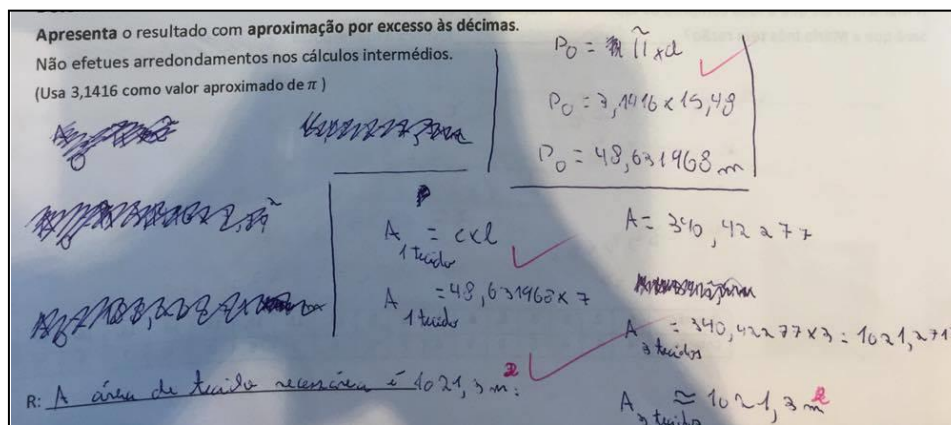 Apresenta o resultado com aproximação por excesso às décimas.
Não efetues arredondamentos nos cálculos intermédios.
(Usa 3,1416 como valor aproximado de π )
P○ = π x d
P○ = 3,1416 x 15,48
P○ = 48,631968 m
A 1 tecido = c x l
A 1 tecido = 48,631968 x 7
A = 340,42277
A 3 tecidos = 340,42277 x 3 = 1021,271
A 3 tecidos ≈ 1021,3 m²
R: A área de tecido necessária é 1021,3 m².